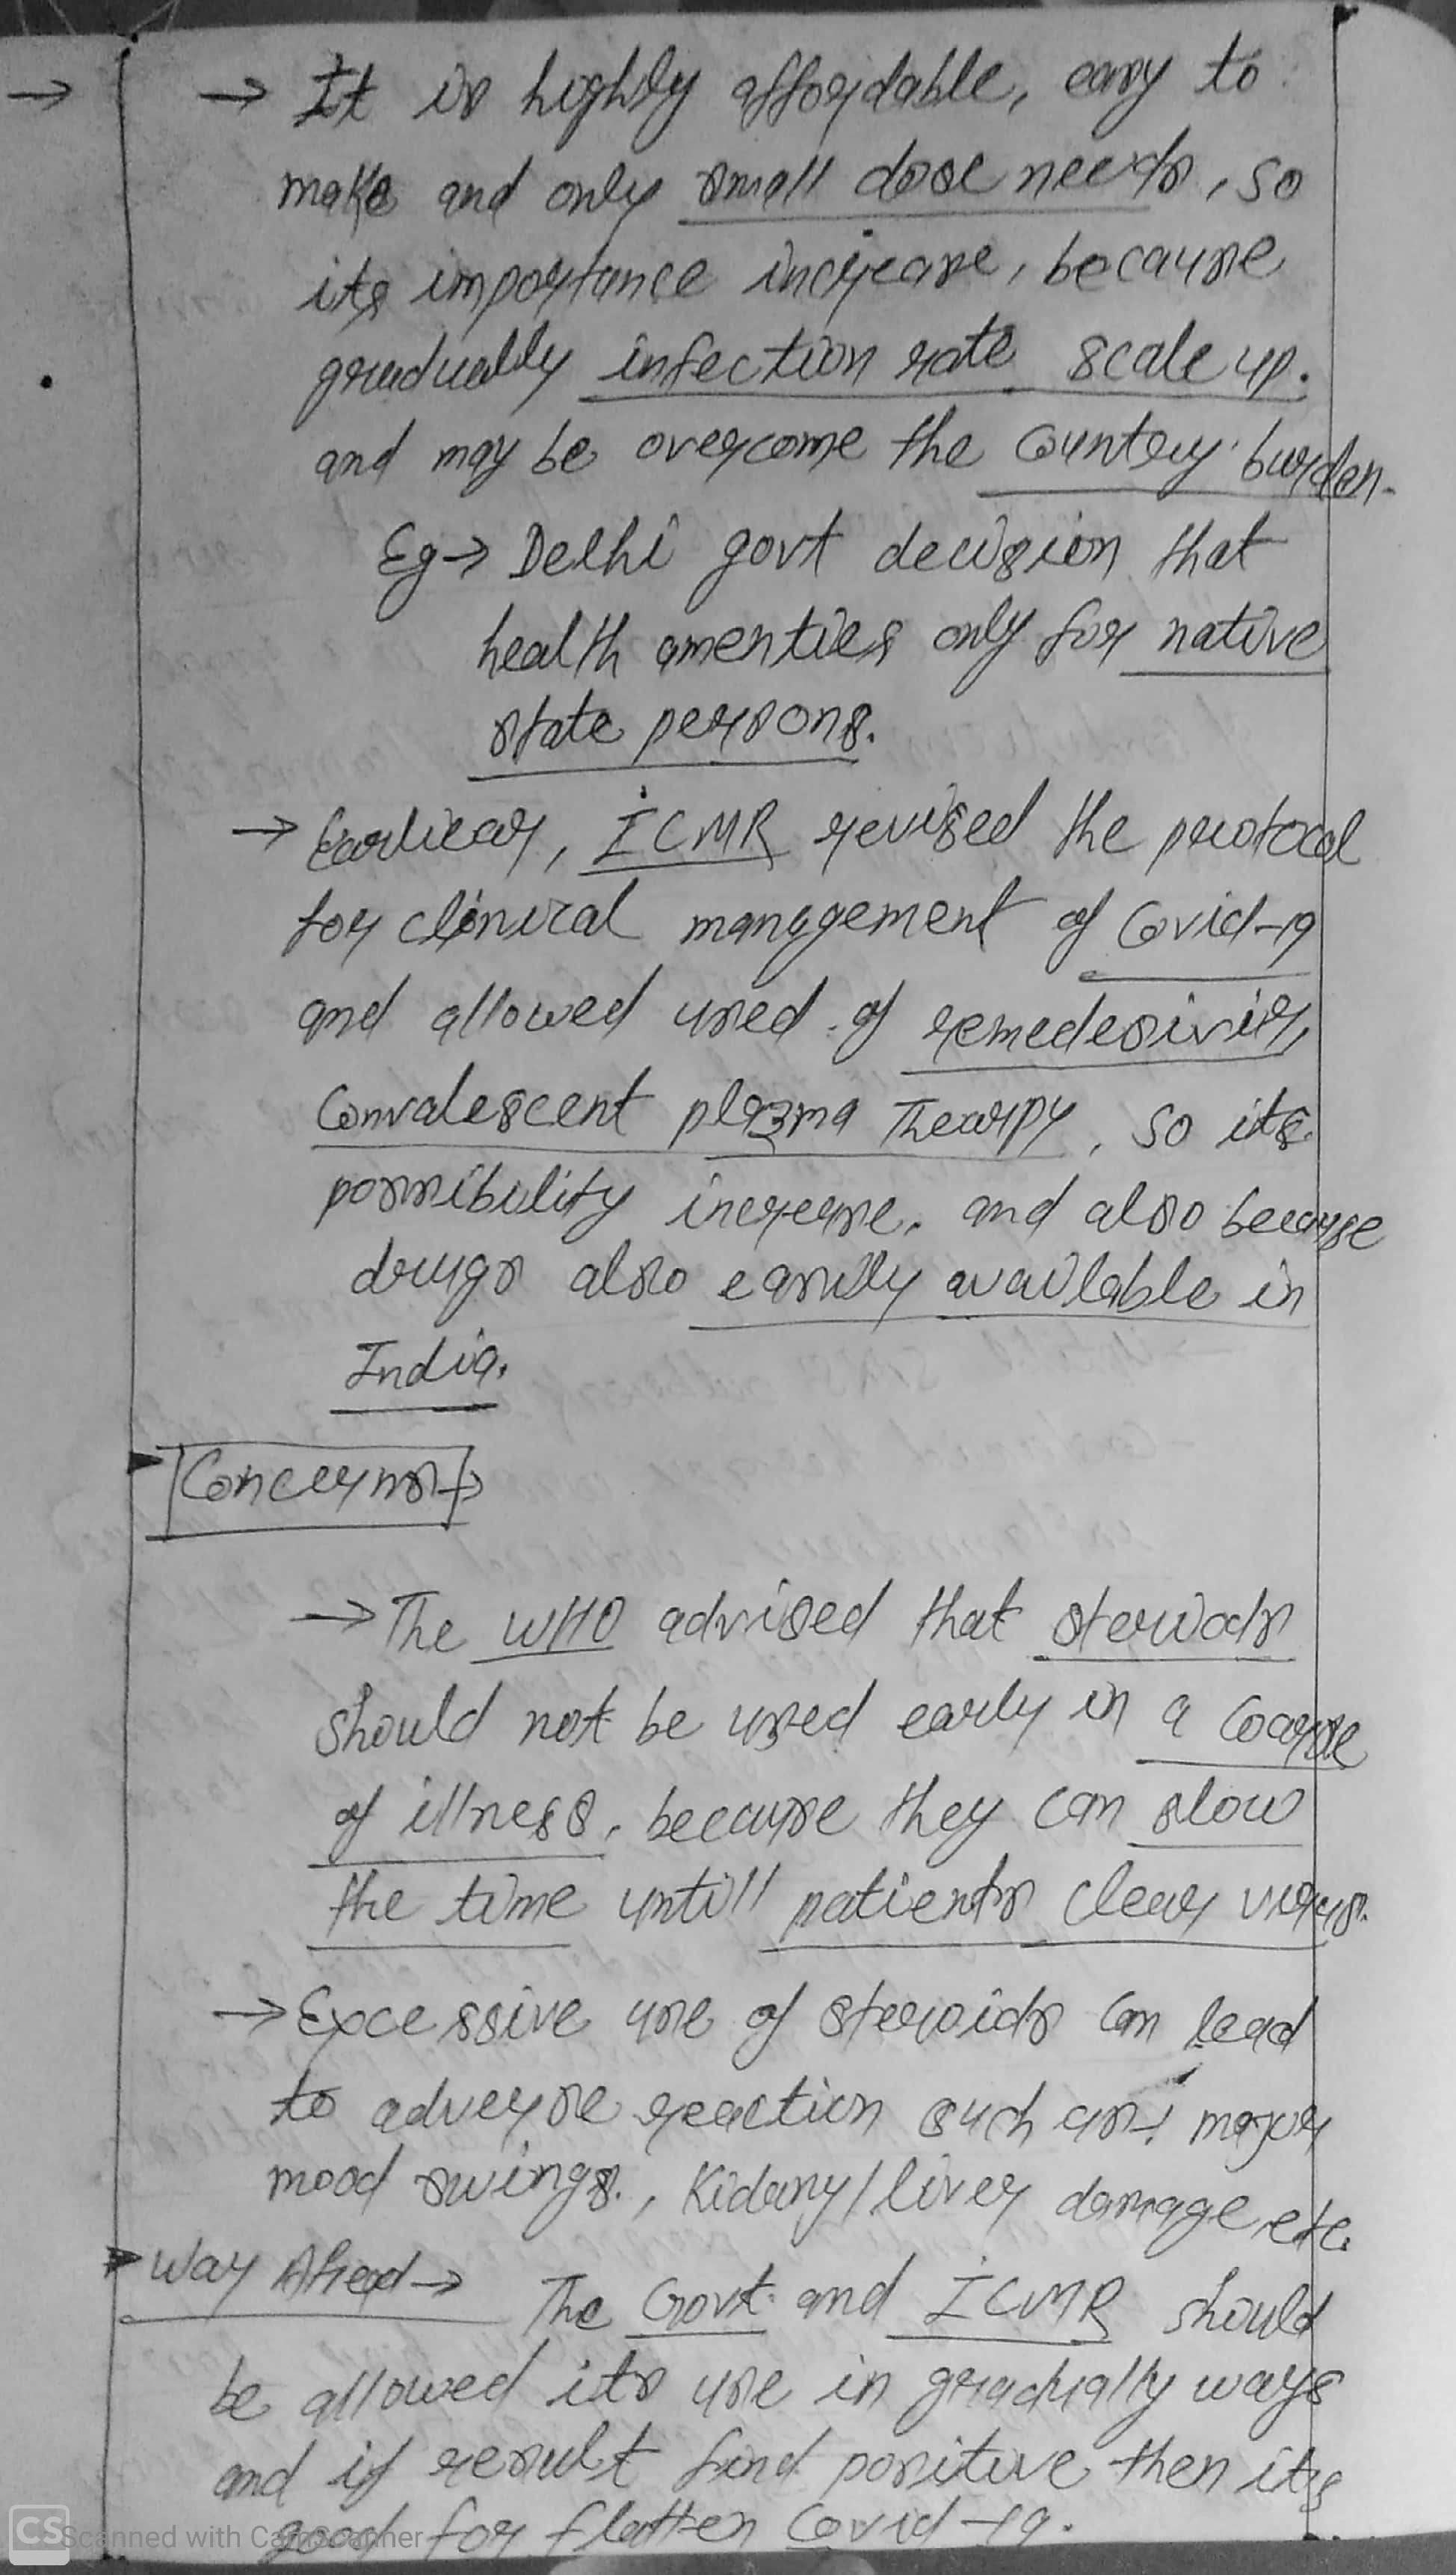 → → It is highly affordable, easy to
make and only small dose needs, so
its importance increase, because
gradually infection rate scale up.
and may be overcome the country burden.
Eg → Delhi govt decision that
health amenties only for native
state persons.
→ Earliear, ICMR revised the protocol
for clinical management of Covid-19
and allowed used of remedesivir,
Convalescent plazma Thearpy, so its
possibility increase. and also because
drugs also easily available in
India.
Concerns →
→ The WHO advised that steroids
should not be used early in a coarse
of illness, because they can slow
the time untill patients clear virus.
→ Excessive use of steroids can lead
to adverse reaction such as → major
mood swings., Kidany/liver damage, etc.
Way Ahead → The Govt. and ICMR should
be allowed its use in gradually ways
and if result find positive then its
good for flatten Covid-19.
CS Scanned with CamScanner